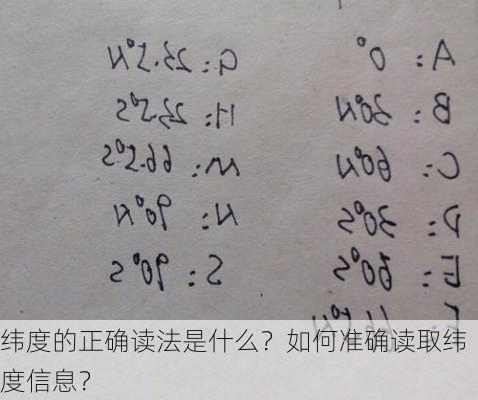 A: 0°
B: 30°N
C: 60°N
D: 30°S
E: 60°S
G: 23.5°N
H: 23.5°S
M: 66.5°S
N: 90°N
S: 90°S
纬度的正确读法是什么？如何准确读取纬
度信息？